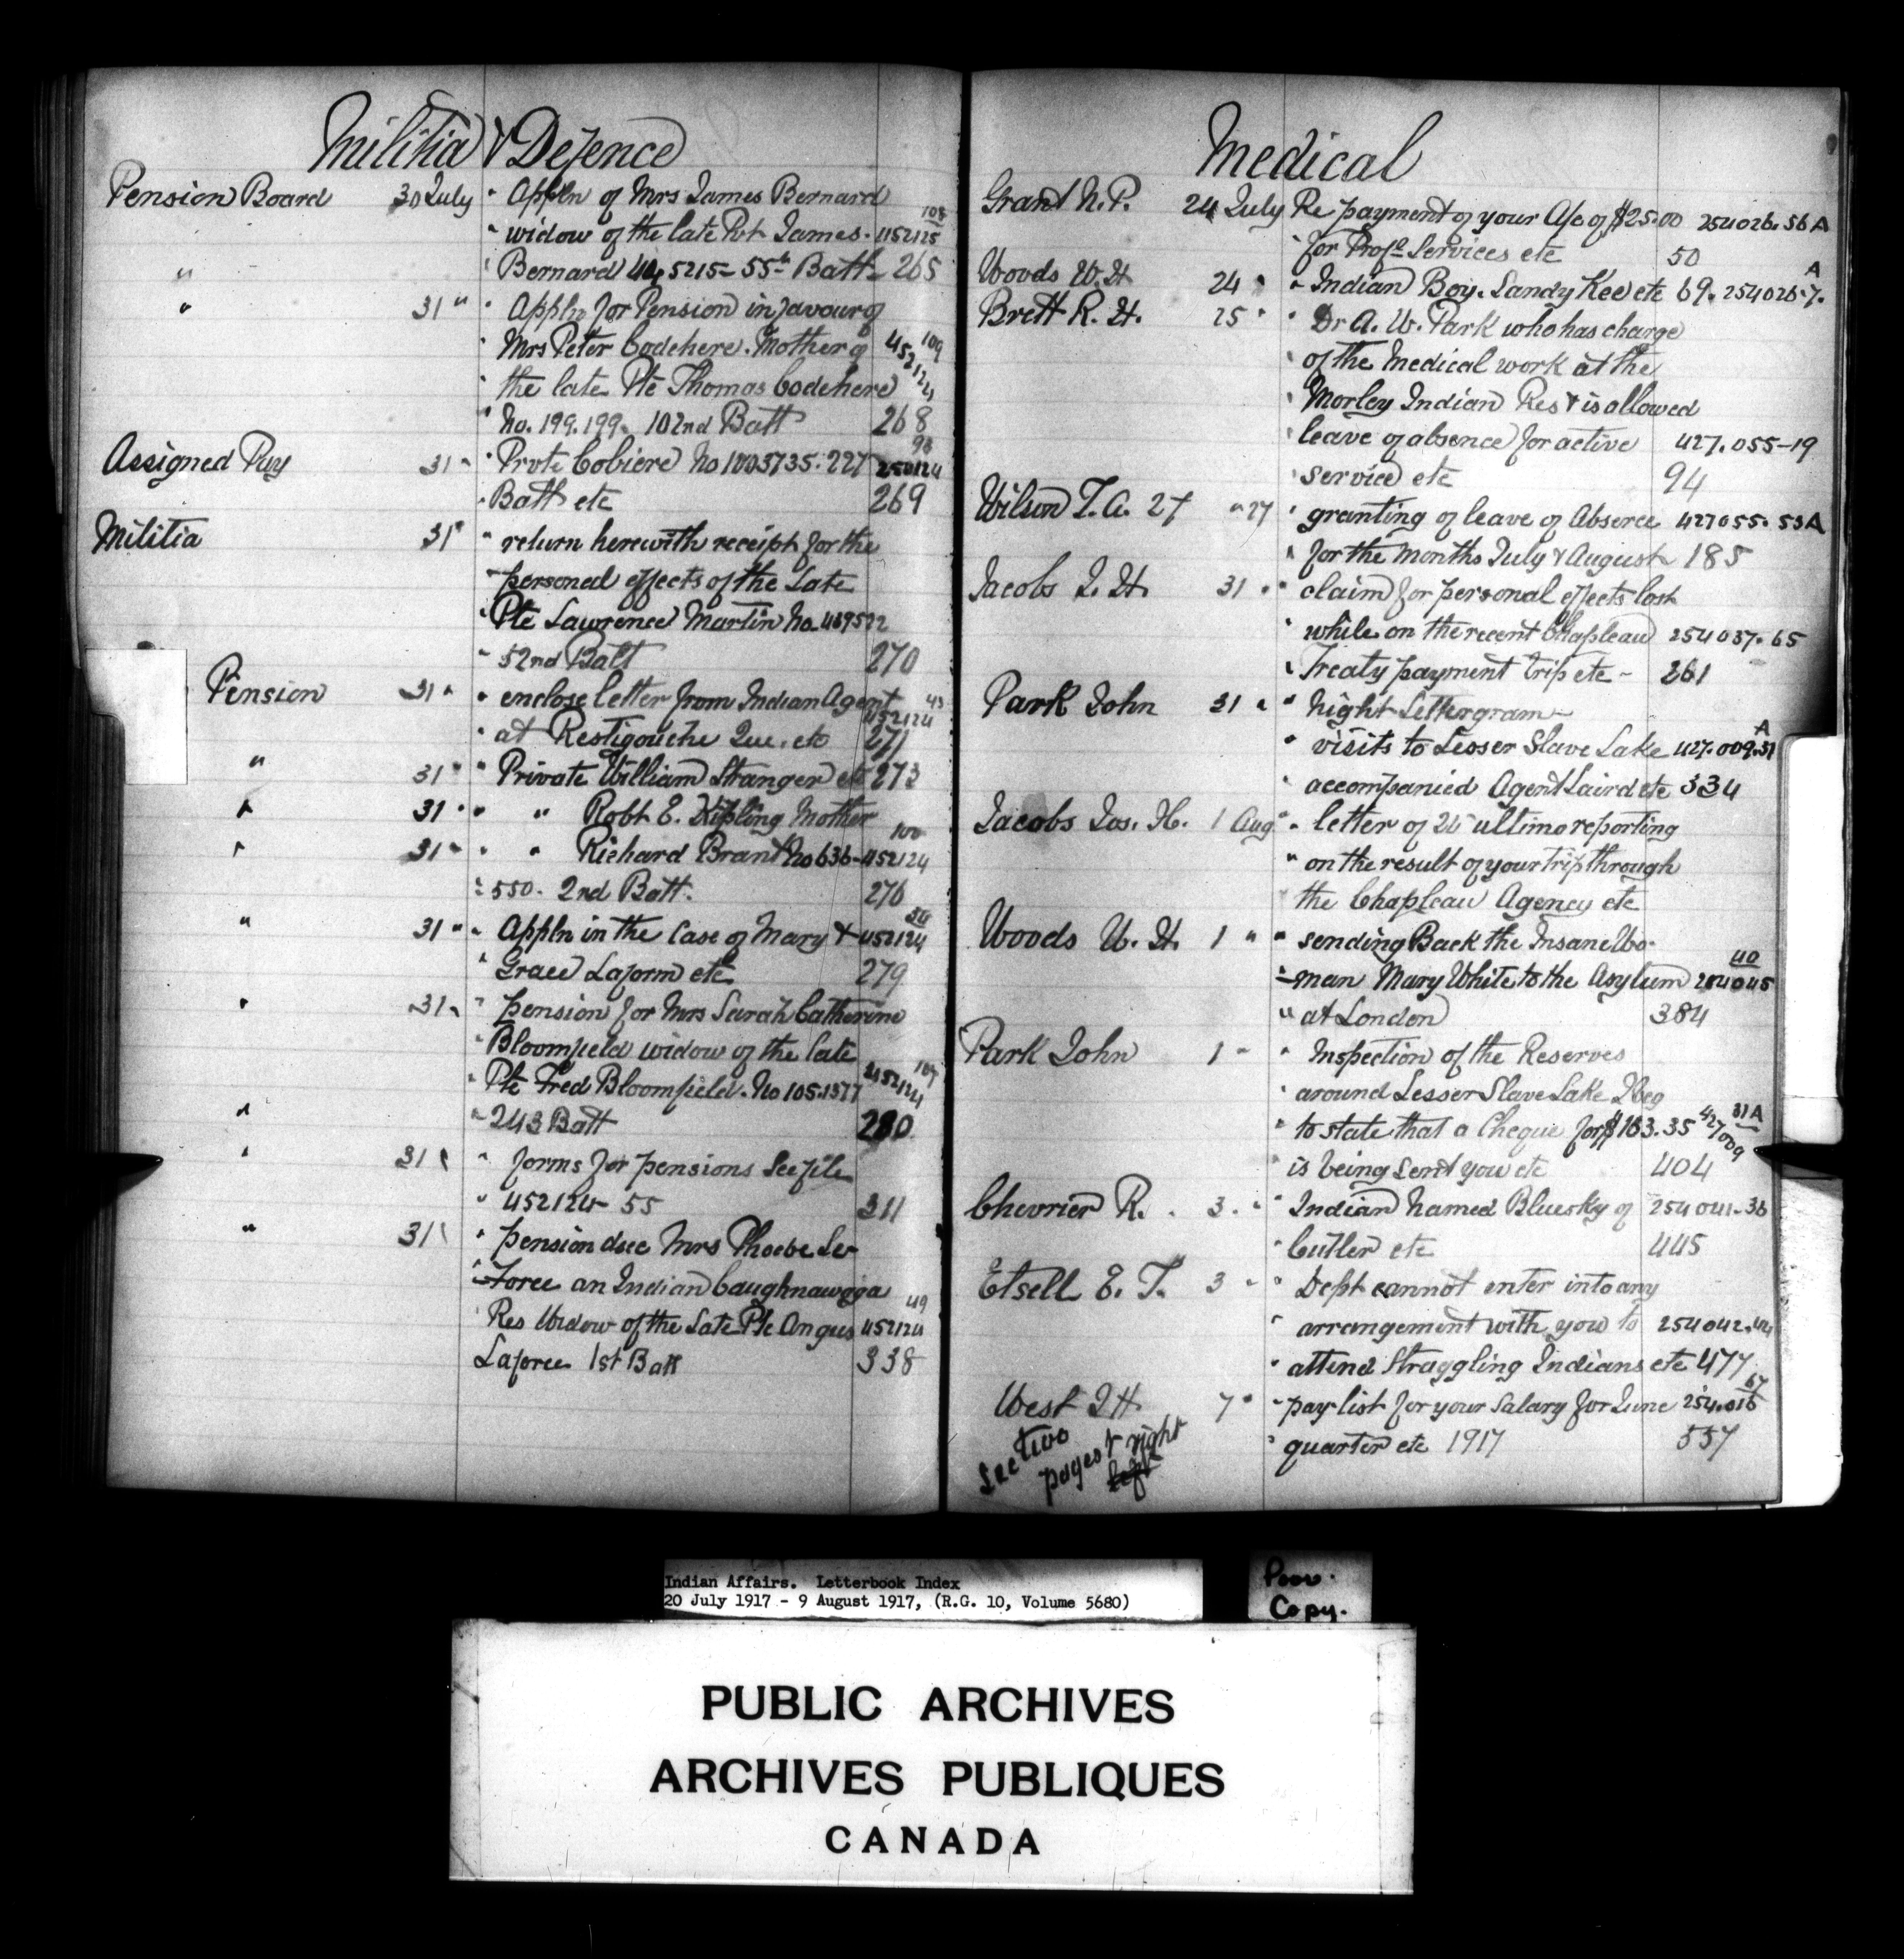 Militia & Defence
Pension Board 30 July " Appln of Mrs James Bernard
" widow of the late Pvt James. 452125 108
" " Bernard 5215 - 55th Batt 265
" 31 " " Appln for Pension in favour of
" Mrs Peter Codehere. Mother of 452124 109
" the late Pte Thomas Codehere
" No. 199.199. 102nd Batt 268
Assigned Pay 31 " " Prvte Cobiere No 1003735. 227 98
" Batt etc 269
Militia 31 " " return herewith receipt for the
" personal effects of the Late
" Pte Lawrence Martin No 439522
" 52nd Batt 270
Pension 31 " " enclose letter from Indian Agent 43
" at Restigouche Que. etc 452124 271
" 31 " " Private William Stranger etc 273
" 31 " " " Robt E. Kipling Mother
" 31 " " " Richard Brant No 636- 452124 100
" 550. 2nd Batt. 276
" 31 " " Appln in the Case of Mary & 452124
" Grace Laform etc 279
" 31 " " pension for Mrs Sarah Catherine
" Bloomfield widow of the late
" Pte Fred Bloomfield. No 105.1377 452124 107
" 243 Batt 280
" 31 " " forms for pensions See file
" 452124 55 311
" 31 " " pension dsec Mrs Phoebe Le-
" -Force an Indian Caughnawaga
" Res Widow of the Late Pte Angus 452124 49
Laforce 1st Batt 338
Medical
Grant N.P. 24 July Re payment of your A/c of $25.00 254026.56A
" for Profl Services etc 50
Woods W.H. 24 " " Indian Boy. Sandy Kee etc 69. 254026.7. A
Brett R. H. 25 " " Dr A. W. Park who has charge
" of the Medical work at the
" Morley Indian Res & is allowed
" leave of absence for active 427.055-19
" service etc 94
Wilson T.A. 27 " 27 " granting of leave of Absence 427055.53A
" for the months July & August 185
Jacobs J. H. 31 " " claim for personal effects lost
" while on the recent Chapleau 254037.65
" Treaty payment trip etc - 261
Park John 31 " " Night Lettergram -
" visits to Lesser Slave Lake 427.009.31 A
" accompanied Agent Laird etc 334
Jacobs Jos. H. 1 Aug " letter of 24 ultimo reporting
" on the result of your trip through
" the Chapleau Agency etc
Woods W. H. 1 " " sending Back the Insane Wo-
" -man Mary White to the Asylum 254045 40
" at London 384
Park John 1 " " Inspection of the Reserves
" around Lesser Slave Lake I beg
" to state that a Cheque for $163.35 427009 31A
" is being sent you etc 404
Chevrier R. 3 " " Indian Named Bluesky of 254041-36
" Cutler etc 445
Etsell E. T. 3 " " Dept cannot enter into any
" arrangement with you to 254042.44
" attend Straggling Indians etc 477
West J H 7 " " pay list for your Salary for June 254.016 67
" quarter etc 1917 557
See two
pages & right
left
Indian Affairs. Letterbook Index
20 July 1917 - 9 August 1917, (R.G. 10, Volume 5680)
Poor.
Copy.
PUBLIC ARCHIVES
ARCHIVES PUBLIQUES
CANADA